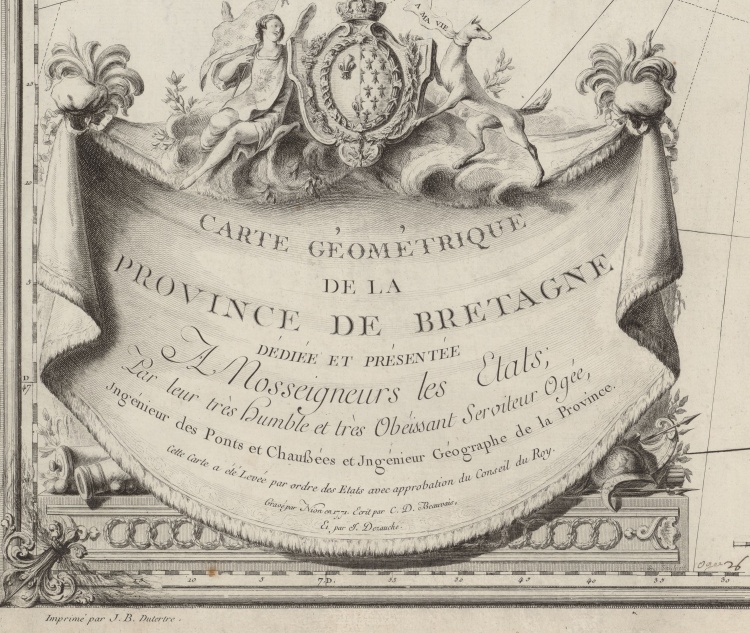 A MA VIE
CARTE GÉOMÉTRIQUE
DE LA
PROVINCE DE BRETAGNE
DÉDIÉE ET PRÉSENTÉE
A Nosseigneurs les Etats;
Par leur très humble et très Obéissant Serviteur Ogée,
Jngénieur des Ponts et Chaußées et Jngénieur Géographe de la Province.
Cette Carte a été Levée par ordre des Etats avec approbation du Conseil du Roy.
Gravé par Nion en 1771. Ecrit par C. D. Beauvais.
Et par J. Dezauche.
15 10 5 7.D. 55 50 45 40 35 30
Imprimé par J. B. Dutertre.